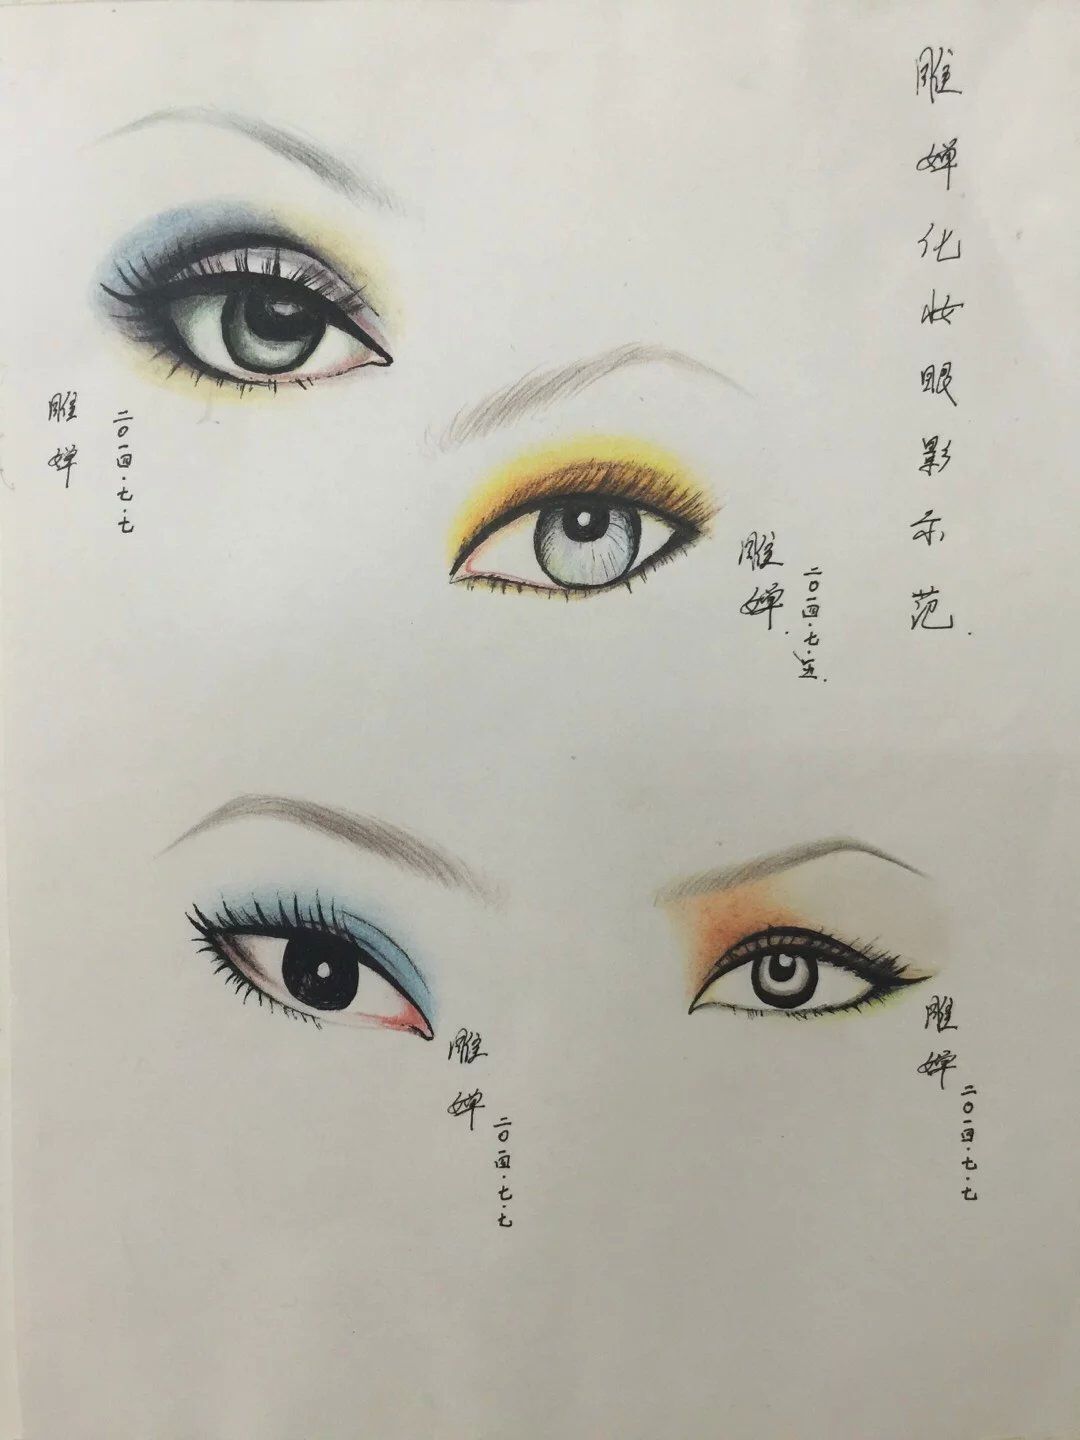 雕婵化妆眼影示范.
雕婵
二〇一四.七.七
雕婵.
二〇一四.七.
雕婵
二〇一四.七.七
雕婵
二〇一四.七.七